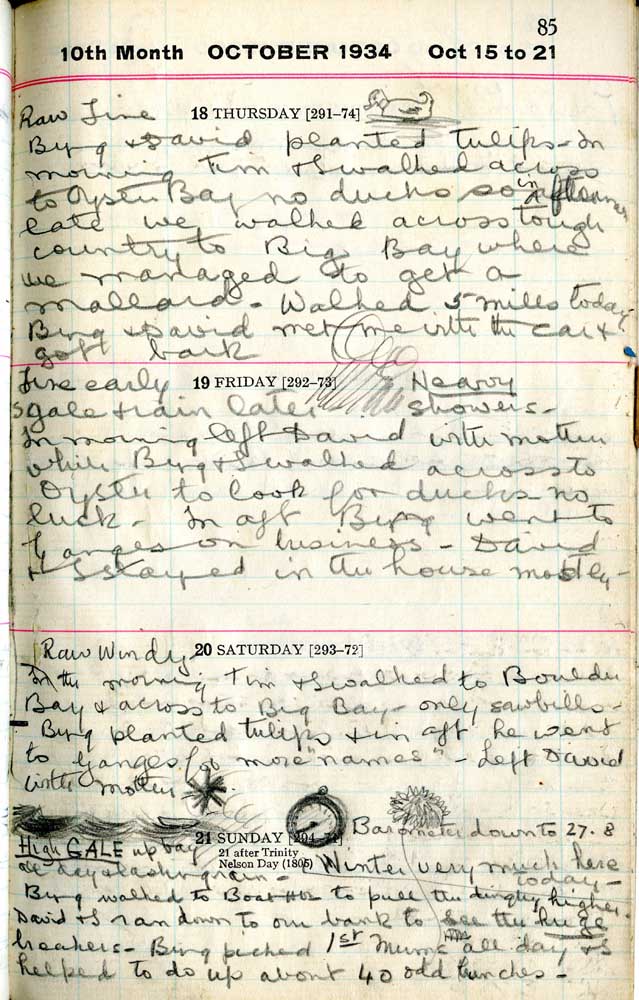 85
10th Month OCTOBER 1934 Oct 15 to 21
Raw Fine 18 THURSDAY [291–74]
Byng & David planted tulips – In
morning Tim & I walked across
to Oyster Bay no ducks so in afternoon
late we walked across tough
country to Big Bay where
we managed to get a
mallard – Walked 5 miles today
Byng & David met me with the car &
gott back
Fine early 19 FRIDAY [292–73] Heavy
gale & rain later showers –
In morning left David with mother
while Byng & I walked across to
Oyster to look for ducks no
luck – In aft Byng went to
Ganges on business – David
& I stayed in the house mostly –
Raw Windy 20 SATURDAY [293–72]
In the morning Tim & I walked to Boulder
Bay & across to Big Bay – only sawbills –
Byng planted tulips & in aft he went
to Ganges for more "names" – Left David
with mother
21 SUNDAY [294–71] Barometer down to 27.8
High GALE up bay 21 after Trinity
all day & lashing rain – Nelson Day (1805) Winter very much here
today –
Byng walked to Boat Hse to pull the dinghy higher.
David & I ran down to our bank to see the huge
breakers – Byng picked 1st Mums all day & I
helped to do up about 40 odd bunches –